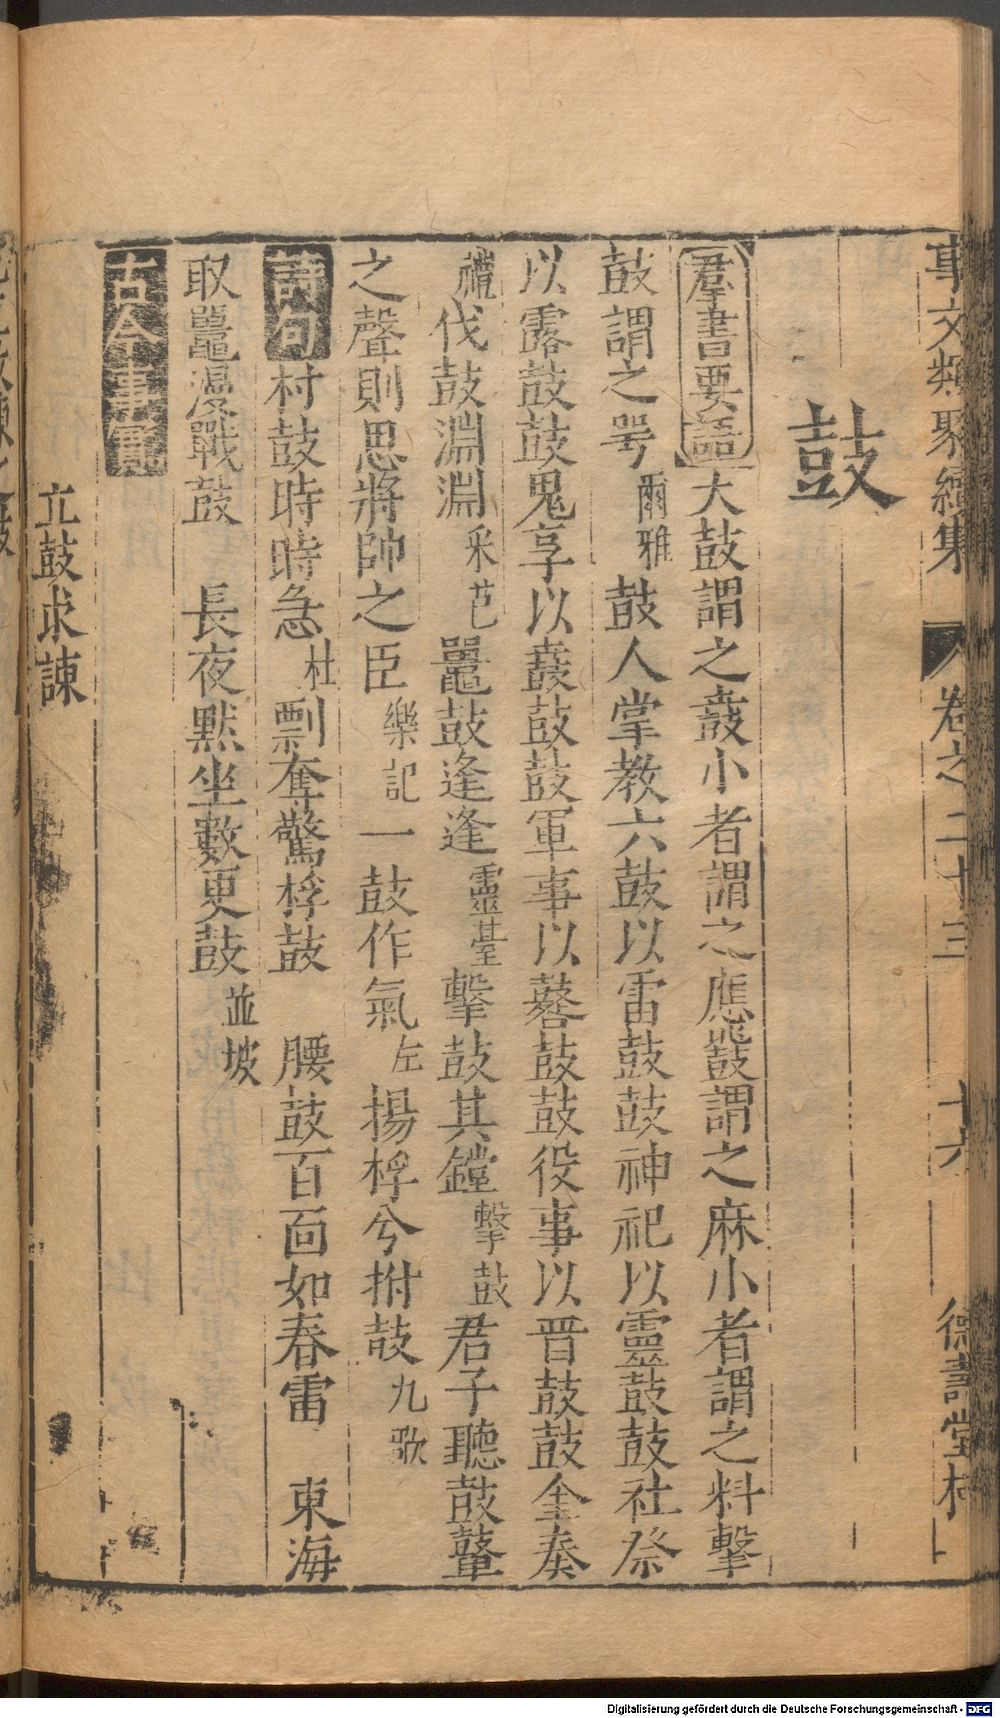 事文類聚續集 卷之二十三 十六 德壽堂梓
鼓
羣書要語 大鼓謂之鼖小者謂之應鼗謂之麻小者謂之料擊
鼓謂之咢爾雅 鼓人掌教六鼓以雷鼓鼓神祀以靈鼓鼓社祭
以露鼓鼓鬼享以鼖鼓鼓軍事以鼛鼓鼓役事以晋鼓鼓金奏
禮伐鼓淵淵采芑 鼉鼓逢逢靈臺擊鼓其鏜擊鼓君子聽鼓鼙
之聲則思將帥之臣樂記一鼓作氣左揚桴兮拊鼓九歌
詩句 村鼓時時急杜剽奪驚桴鼓 腰鼓百面如春雷 東海
取鼉漫戰鼓 長夜默坐數更鼓並坡
古今事實
立鼓求諫
Digitalisierung gefördert durch die Deutsche Forschungsgemeinschaft - DFG